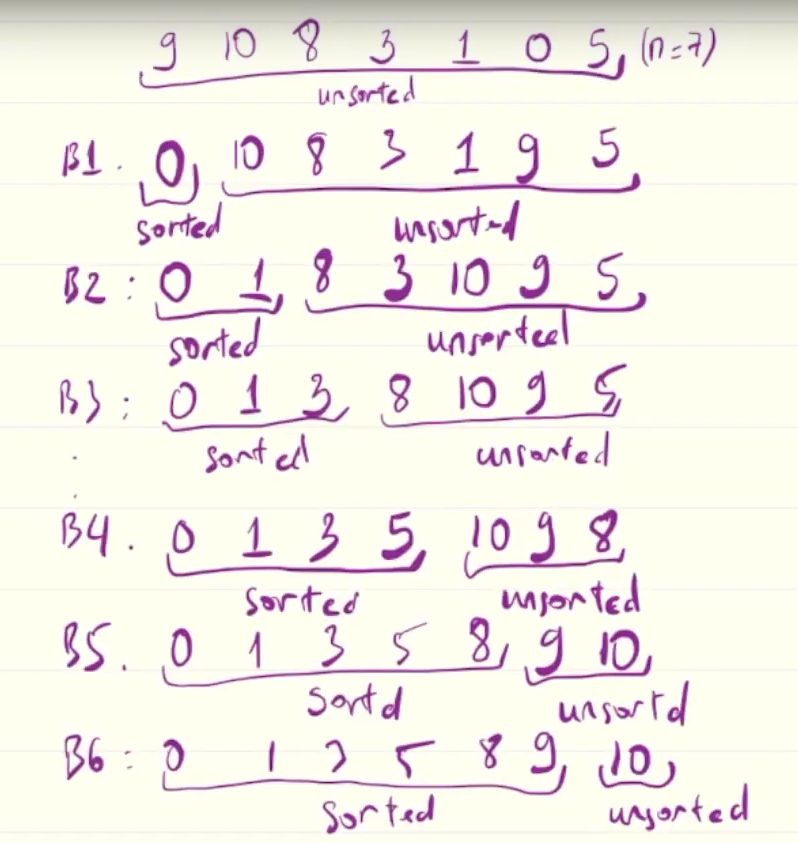 9 10 8 3 1 0 5, (n=7)
unsorted
B1. 0, 10 8 3 1 9 5,
sorted unsorted
B2: 0 1, 8 3 10 9 5,
sorted unsorted
B3: 0 1 3, 8 10 9 5,
sorted unsorted
B4. 0 1 3 5, 10 9 8,
sorted unsorted
B5. 0 1 3 5 8, 9 10,
Sortd unsortd
B6: 0 1 3 5 8 9, 10,
Sorted unsorted